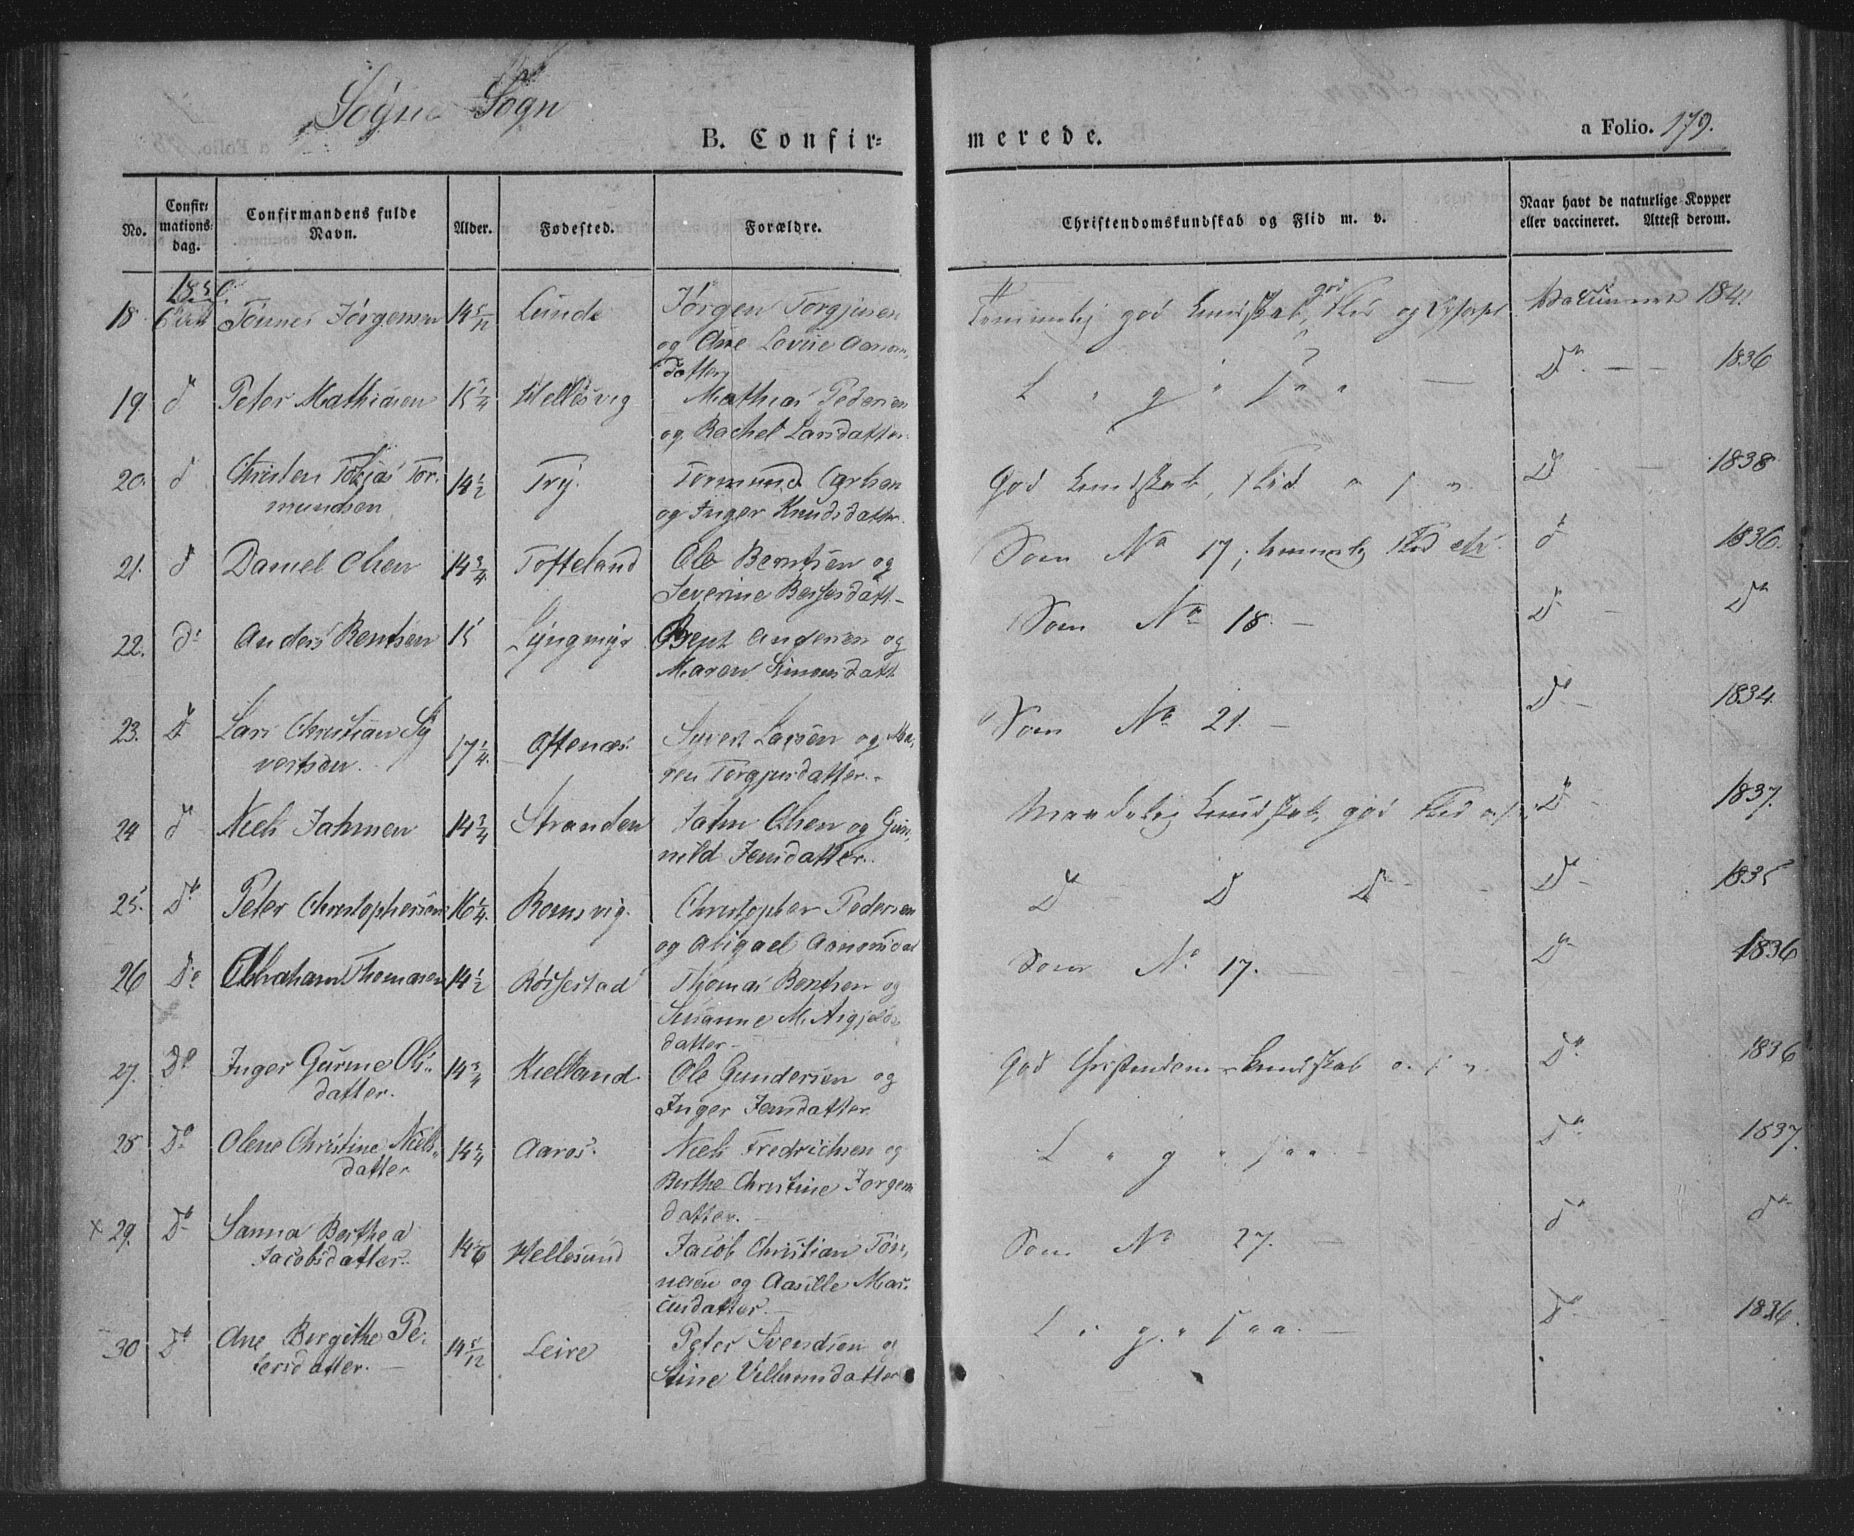 Søgne Sogn
B. Confirmerede.
a Folio. 179.
No. Confirmationsdag. Confirmandens fulde Navn. Alder. Fødested. Forældre. Christendomskundskab og Flid m. v. Naar havt de naturlige Kopper eller vaccineret. Attest derom.
1850.
18 Tønnes Jørgensen 14 5/12 Lunde Jørgen Torgjusen
og Ane Lovise Aanons
datter
god Kundskab, god Flid og
19. d Peter Mathiasen 15 1/4 Hellesvig Mathias Pedersen
og Rachel Larsdatter.
L i g e s a a D° 1836
20. d Christen Tobias Tor-
mundsen 14 1/2 Try Tormund
og Inger Knudsdatter.
God Kundskab, Flid o. s. v. D 1838
21. d Daniel Olsen 14 3/4 Tofteland Ole Berntsen og
Severine
Som No 17, Flid etc. d 1836.
22. d° Anders Bentsen 15 Lyngmyr Bent Andersen og
Maren Simonsdatt
Som No 18. D D°
23. D Lars Christian Sy
vertsen. 17 1/4. Oftenæs. Syvert Larsen og Ma-
ren Torgjusdatter.
Som No 21. D° 1834.
24 d Niels Jahnsen 14 3/4 Stranden Jahn Olsen og Gun-
nild Jensdatter.
Maadelig Kundskab, god Flid D 1837.
25. D° Peter Christophersen 16 1/4 Romsvig. Christopher Pedersen
og Abigael Aanonsdat
D D D D 1835
26 D° Abraham Thomasen 14 1/2 Røssestad Thomas Bentsen og
Susanne M.
datter
Som No. 17. D° 1836
27. D° Inger Gurine Ols-
datter. 14 3/4 Kielland Ole Gundersen og
Inger Jensdatter
God Christendoms-Kundskab o. s. v. D° 1836
28 D° Olene Christine Niels-
datter 14 1/4 Aaros. Niels Fredrichsen og
Berthe Christine Jørgens
datter.
L i g e s a a. D° 1837.
x 29. D° Sanna Berthea
Jacobsdatter. Hellesund Jacob Christian Tøn-
nesen og Aasille Mar-
cusdatter.
Som No 27. d° d°
30 D° Ane Bergithe Pe-
tersdatter. Leire Peter Svendsen og
Stine Villumsdatter
L i g e s a a. D° 1836.